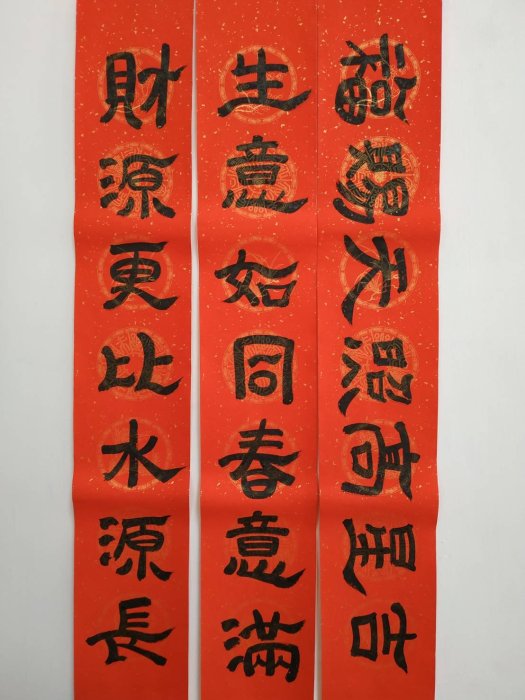 吉星高照天賜福
生意如同春意滿
財源更比水源長